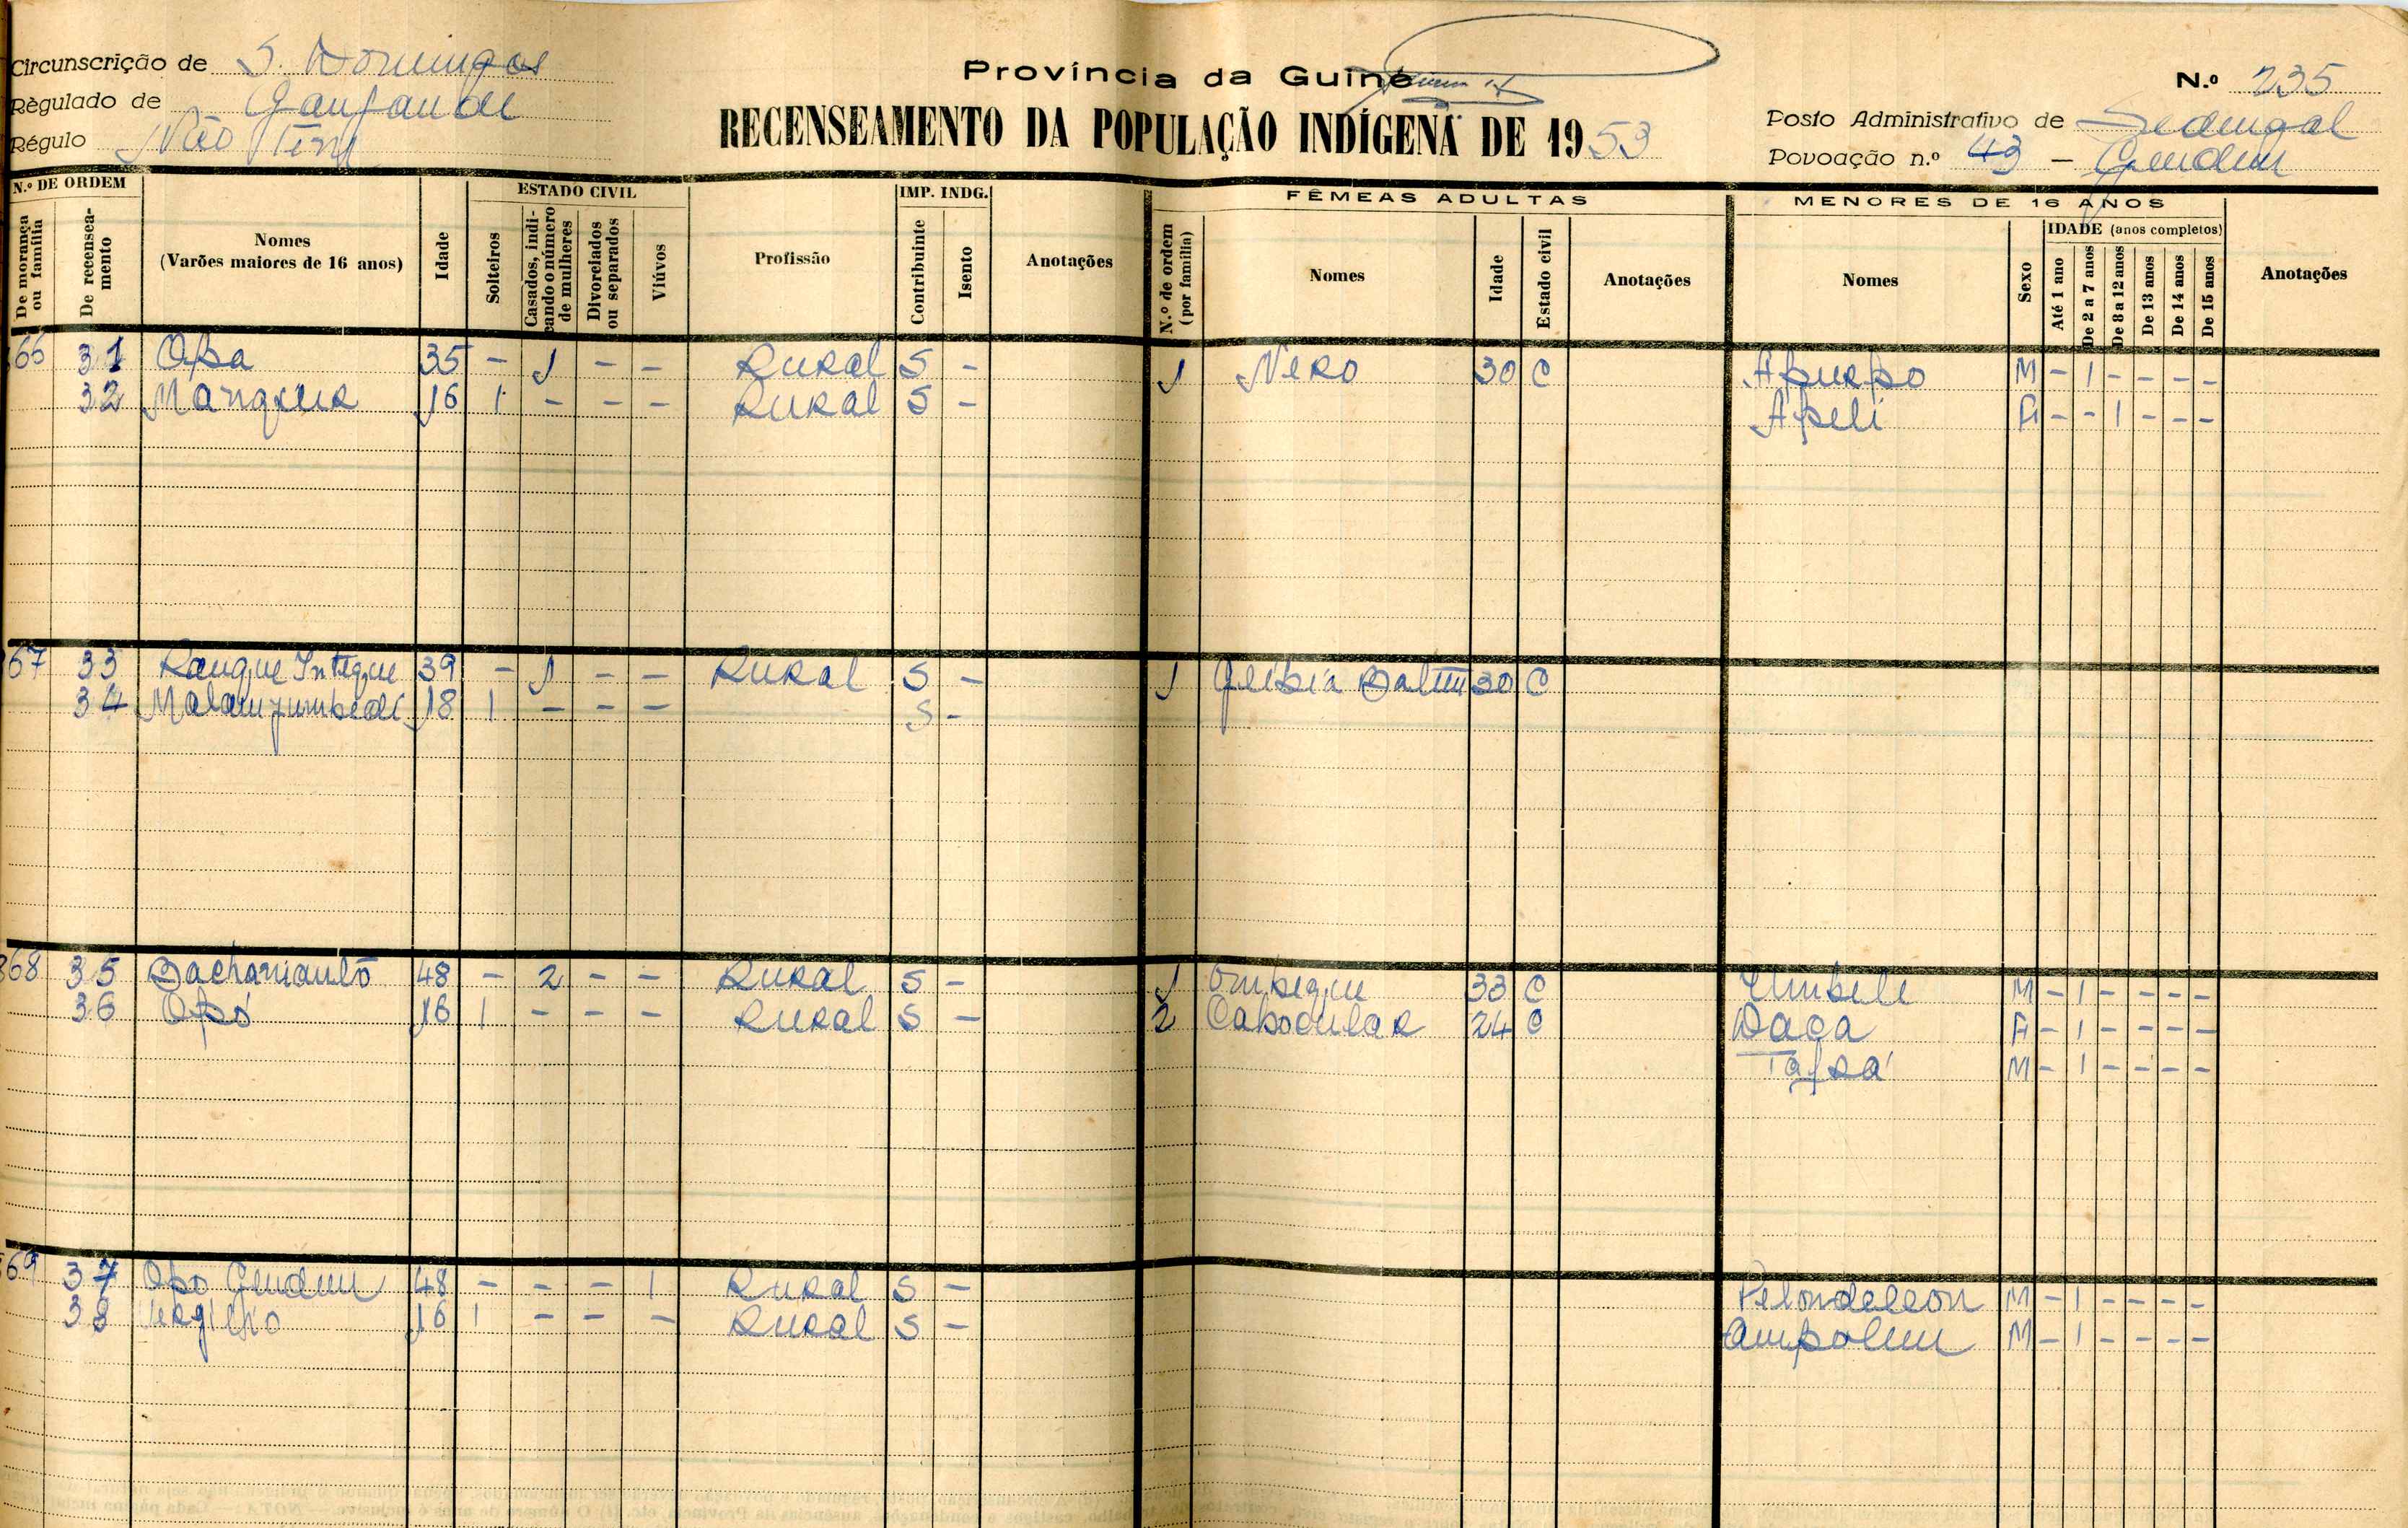 Circunscrição de S. Domingos
Régulado de
Régulo Não Tem
Província da Guiné
RECENSEAMENTO DA POPULAÇÃO INDÍGENA DE 1953
N.º 235
Posto Administrativo de Sedengal
Povoação n.º 43 - Gendem
N.º DE ORDEM
De morança ou família
De recenseamento
Nomes
(Varões maiores de 16 anos)
Idade
ESTADO CIVIL
Solteiros
Casados, indicando o número de mulheres
Divorciados ou separados
Viúvos
Profissão
IMP. INDG.
Contribuinte
Isento
Anotações
FÊMEAS ADULTAS
N.º de ordem (por família)
Nomes
Idade
Estado civil
Anotações
MENORES DE 16 ANOS
Nomes
Sexo
IDADE (anos completos)
Até 1 ano
De 2 a 7 anos
De 8 a 12 anos
De 13 anos
De 14 anos
De 15 anos
Anotações
66 31 Opa 35 - 1 - - Rural S - 1 Nero 30 C Apurpo M - 1 - - - -
32 16 1 - - - Rural S - Apeli - - 1 - - -
67 33 Rangue Integue 39 - 1 - - Rural S - 1 30 C
34 18 1 - - - S -
368 35 48 - 2 - - Rural S - 1 Ompegue 33 C Umpele M - 1 - - - -
36 Opó 16 1 - - - Rural S - 2 Capocular 24 C Daca - 1 - - - -
Tapa M - 1 - - - -
69 37 Opo Gendem 48 - - - 1 Rural S - Pelondeleon M - 1 - - - -
38 16 1 - - - Rural S - Ampolem M - 1 - - - -